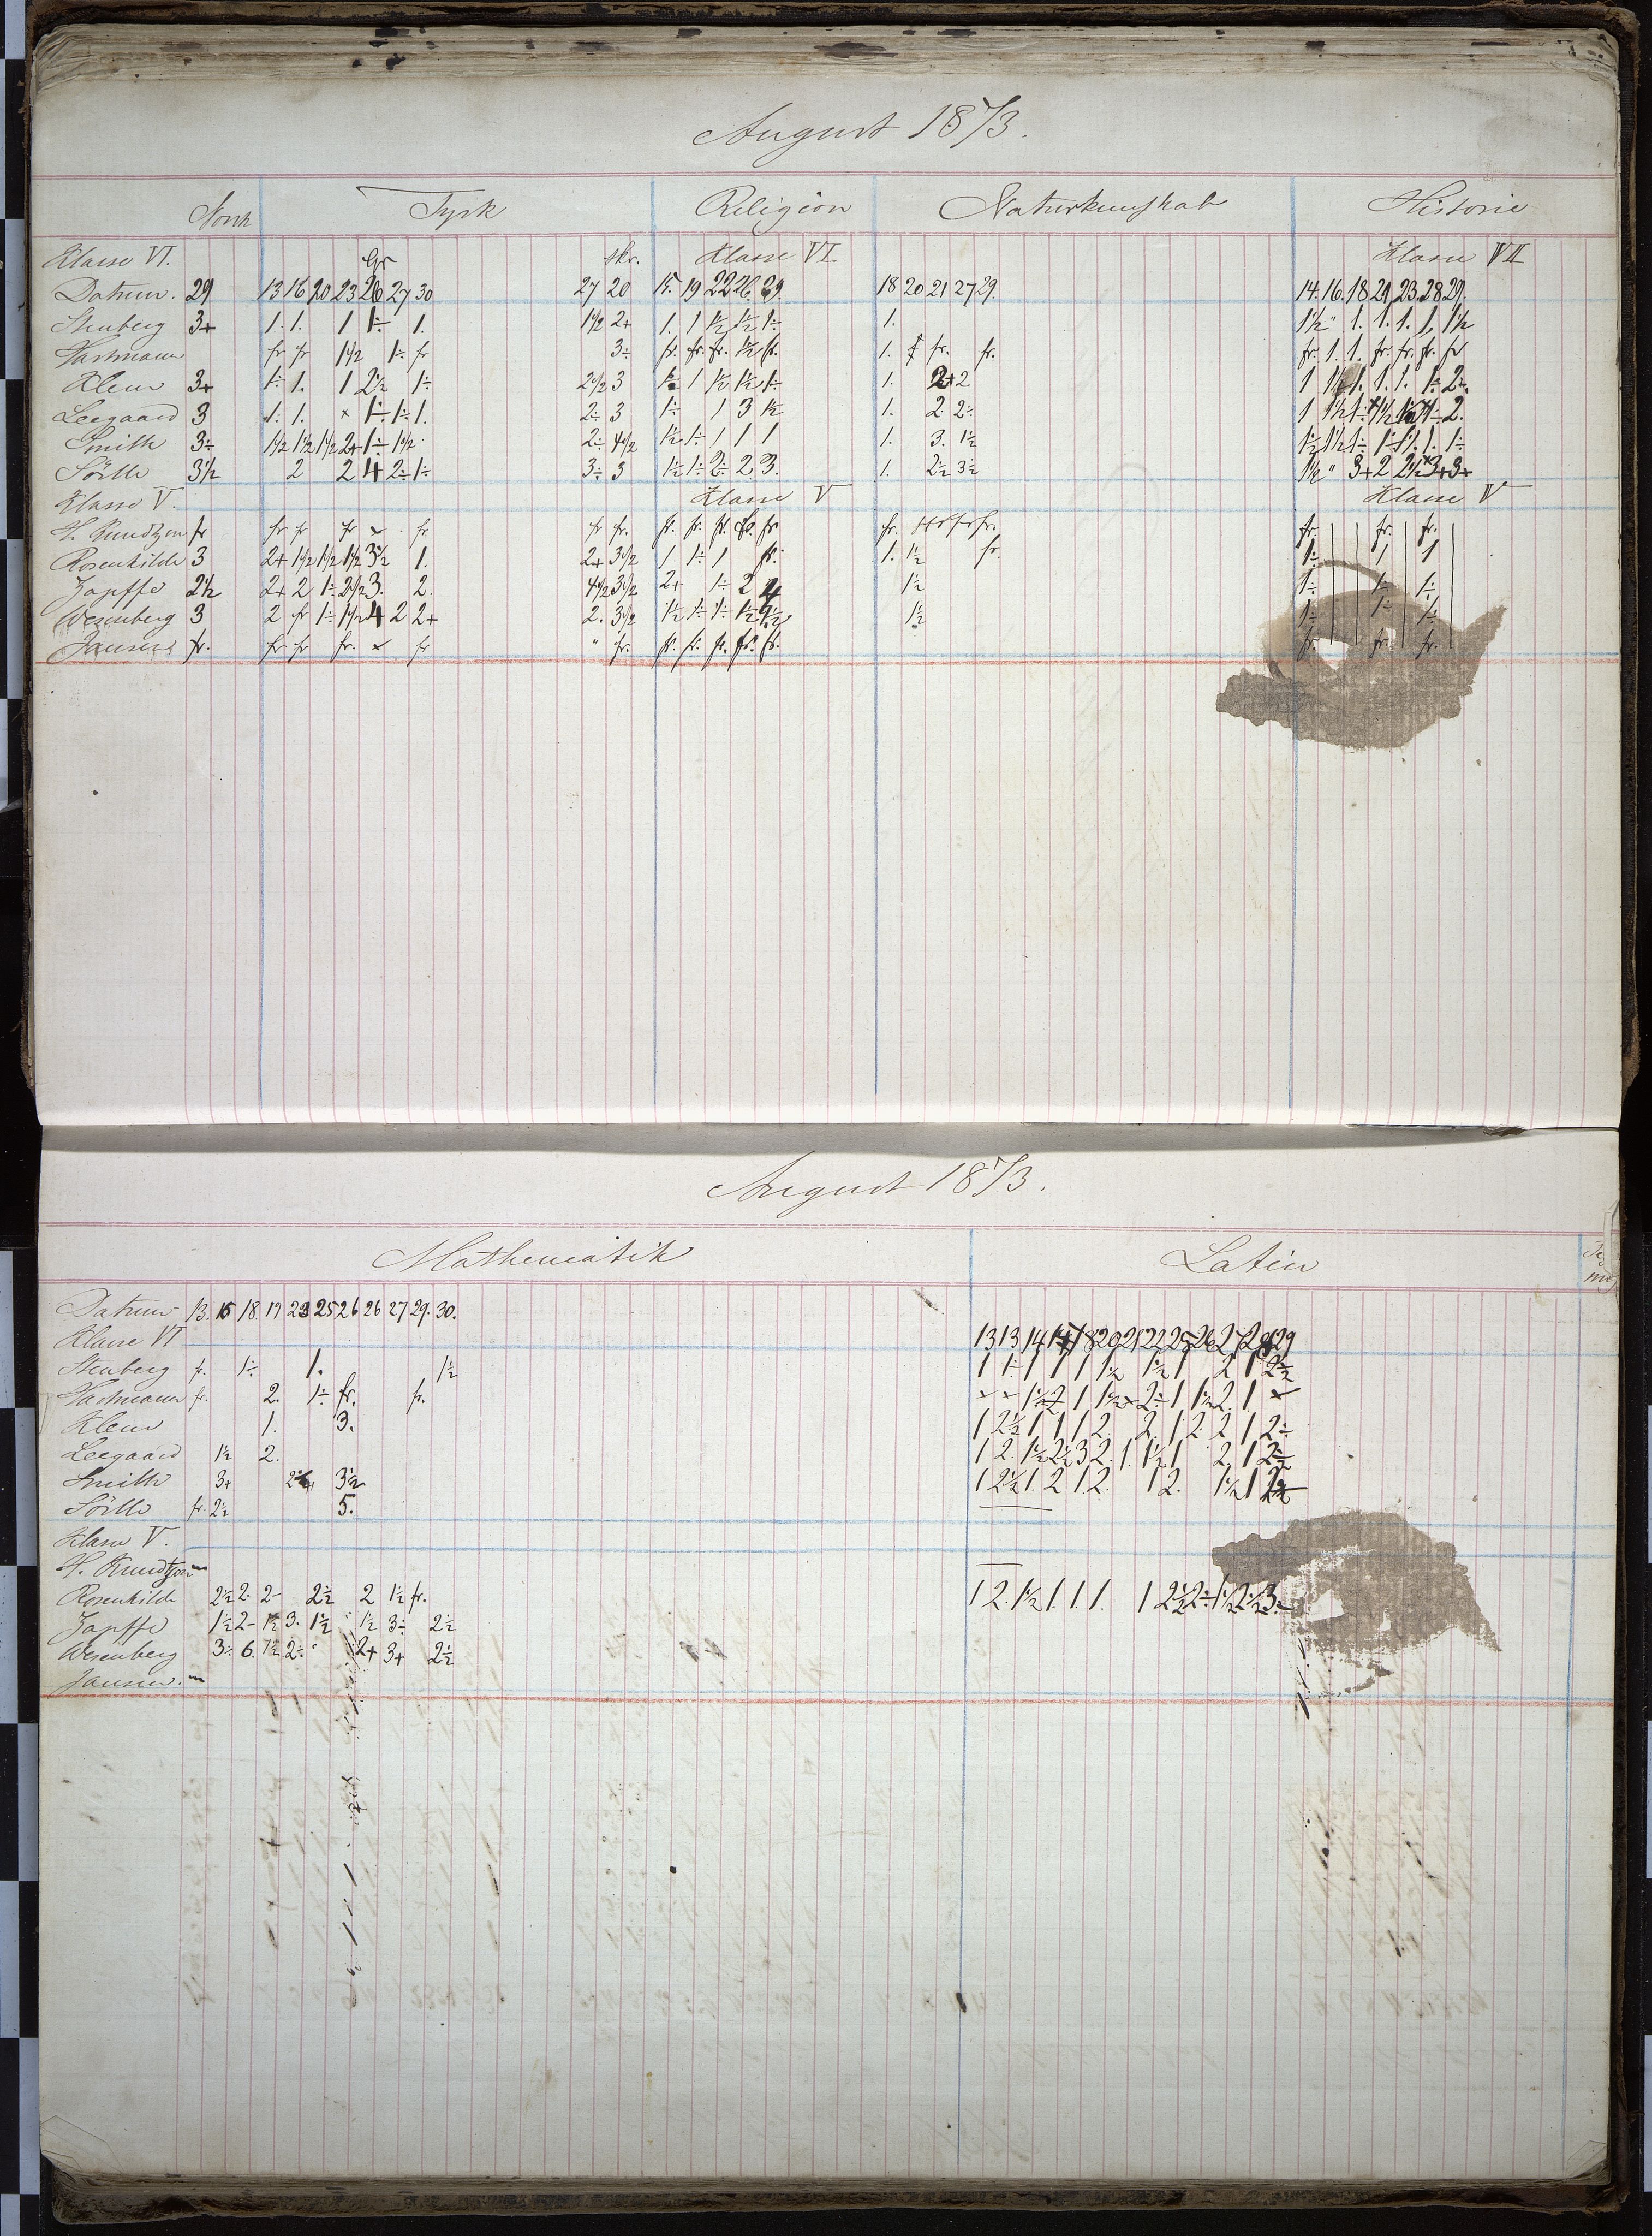 August 1873.
Norsk Tysk Religion Naturkunskab Historie
Klasse VI. Gr skr. Klasse VI Klasse VII
Datum. 29 13 16 20 23 26 27 30 27 20 15. 19 22 26 29. 18 20 21 27 29. 14. 16. 18 21 23. 28 29.
Stenberg 3+ 1. 1. 1 1÷ 1. 1½ 2+ 1. 1 1½ 1½ 1÷ 1. 1½ " 1. 1. 1. 1, 1½
Hartmann fr fr 1½ 1÷ fr 3÷ fr. fr. fr. 1½ fr. 1. fr. fr. fr. 1. 1. fr. fr. fr. fr
Klem 3+ 1÷ 1. 1 2½ 1÷ 2½ 3 1 1½ 1½ 1÷ 1. 2+ 2 1 1½ 1. 1. 1. 1÷ 2÷
Leegaard 3 1. 1. × 1÷ 1÷ 1. 2÷ 3 1÷ 1 3 1½ 1. 2. 2÷ 1 1½ 1÷ 2.
Smith 3÷ 1½ 1½ 1½ 2+ 1÷ 1½ 2÷ 4½ 1½ 1÷ 1 1 1 1. 3. 1½ 1½ 1½ 1÷ 1. 1÷
3½ 2 2 4 2÷ 1÷ 3÷ 3 1½ 1÷ 2÷ 2. 3. 1. 2½ 3½ 1½ " 3+ 2 2½ 3+ 3+
Klasse V. Klasse V Klasse V
H. Knudtzon fr fr fr fr × fr fr fr. fr. fr. fr. fr. fr. fr. fr. fr. fr. fr. fr.
Rosenkilde 3 2+ 1½ 1½ 1½ 3½ 1. 2+ 3½ 1 1÷ 1 fr. 1. 1½ fr. 1÷ 1 1
2½ 2+ 2 1÷ 2½ 3. 2. 4½ 3½ 2+ 1÷ 2 4 1½ 1÷ 1÷ 1÷
Wesenberg 3 2 fr 1÷ 1½ 4 2 2+ 2. 3½ 1½ 1÷ 1÷ 1½ 1½ 1÷ 1÷ 1÷
Jansen fr. fr fr fr. × fr " fr. fr. fr. fr. fr. fr. fr. fr. fr.
August 1873.
Mathematik Latin
Datum 13. 15 18. 19 23 25 26 26 27 29. 30.
Klasse VI 13 13 14 14 18 20 21 22 25 26 27 28 29
Stenberg fr. 1÷ 1. 1½ 1 1÷ 1 1 1 1½ 1½ 1 2 1 2½
Hartmann fr. 2. 1÷ fr. fr. × × 1½ 2 1 1½ × 2÷ 1 1½ 2. 1 ×
Klem 1. 3. 1 2½ 1 1 1 2. 2. 1 2. 2 1 2÷
Leegaard 1½ 2. 1 2. 1½ 2½ 3 2. 1. 1½ 1 2. 1 2½
Smith 3+ 3½ 1 2½ 1. 2 1 2. 1 2. 1½ 1
fr. 2½ 5.
Klasse V.
H. Knudtzon
Rosenkilde 2½ 2. 2- 2½ 2 1½ fr. 1 2. 1½ 1. 1 1. 1 2½ 2÷ 1½ 2½ 3÷
1½ 2- 1½ 3. 1½ 1½ 3÷ 2½
Wesenberg 3÷ 6. 1½ 2÷ 2+ 3+ 2½
Jansen.